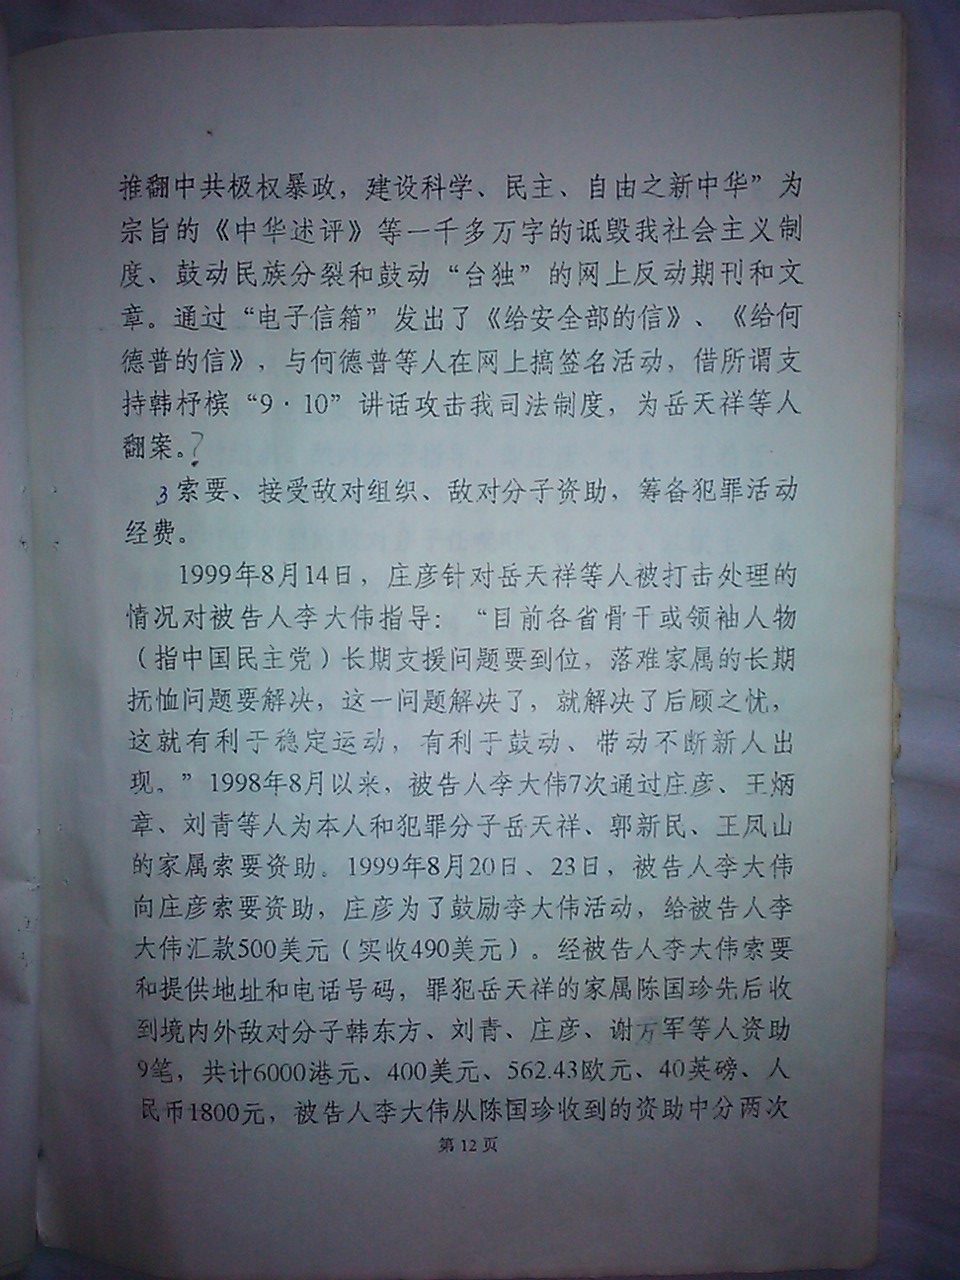 推翻中共极权暴政，建设科学、民主、自由之新中华”为
宗旨的《中华述评》等一千多万字的诋毁我社会主义制
度、鼓动民族分裂和鼓动“台独”的网上反动期刊和文
章。通过“电子信箱”发出了《给安全部的信》、《给何
德普的信》，与何德普等人在网上搞签名活动，借所谓支
持韩杼槟“9·10”讲话攻击我司法制度，为岳天祥等人
翻案。?
3索要、接受敌对组织、敌对分子资助，筹备犯罪活动
经费。
1999年8月14日，庄彦针对岳天祥等人被打击处理的
情况对被告人李大伟指导：“目前各省骨干或领袖人物
（指中国民主党）长期支援问题要到位，落难家属的长期
抚恤问题要解决，这一问题解决了，就解决了后顾之忧，
这就有利于稳定运动，有利于鼓动、带动不断新人出
现。”1998年8月以来，被告人李大伟7次通过庄彦、王炳
章、刘青等人为本人和犯罪分子岳天祥、郭新民、王凤山
的家属索要资助。1999年8月20日、23日，被告人李大伟
向庄彦索要资助，庄彦为了鼓励李大伟活动，给被告人李
大伟汇款500美元（实收490美元）。经被告人李大伟索要
和提供地址和电话号码，罪犯岳天祥的家属陈国珍先后收
到境内外敌对分子韩东方、刘青、庄彦、谢万军等人资助
9笔，共计6000港元、400美元、562.43欧元、40英磅、人
民币1800元，被告人李大伟从陈国珍收到的资助中分两次
第 12 页